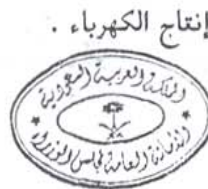 إنتاج الكهرباء .
المملكة العربية السعودية
الأمانة العامة لمجلس الوزراء